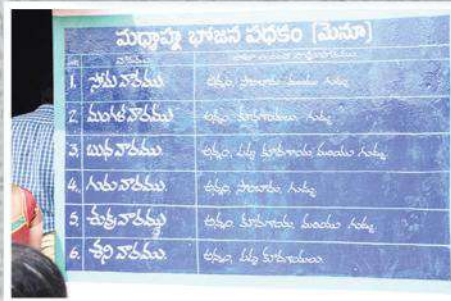 మధ్యాహ్న భోజన పథకం [మెనూ]
వారము
1. సోమ వారము అన్నం, సాంబారు మరియు గుడ్డు
2. మంగళ వారము అన్నం, కూరగాయలు, గుడ్డు
3. బుధ వారము అన్నం, పప్పు కూరగాయ మరియు గుడ్డు
4. గురు వారము అన్నం, సాంబారు, గుడ్డు
5. శుక్ర వారము అన్నం, కూరగాయ, మరియు గుడ్డు
6. శని వారము అన్నం, పప్పు కూరగాయలు